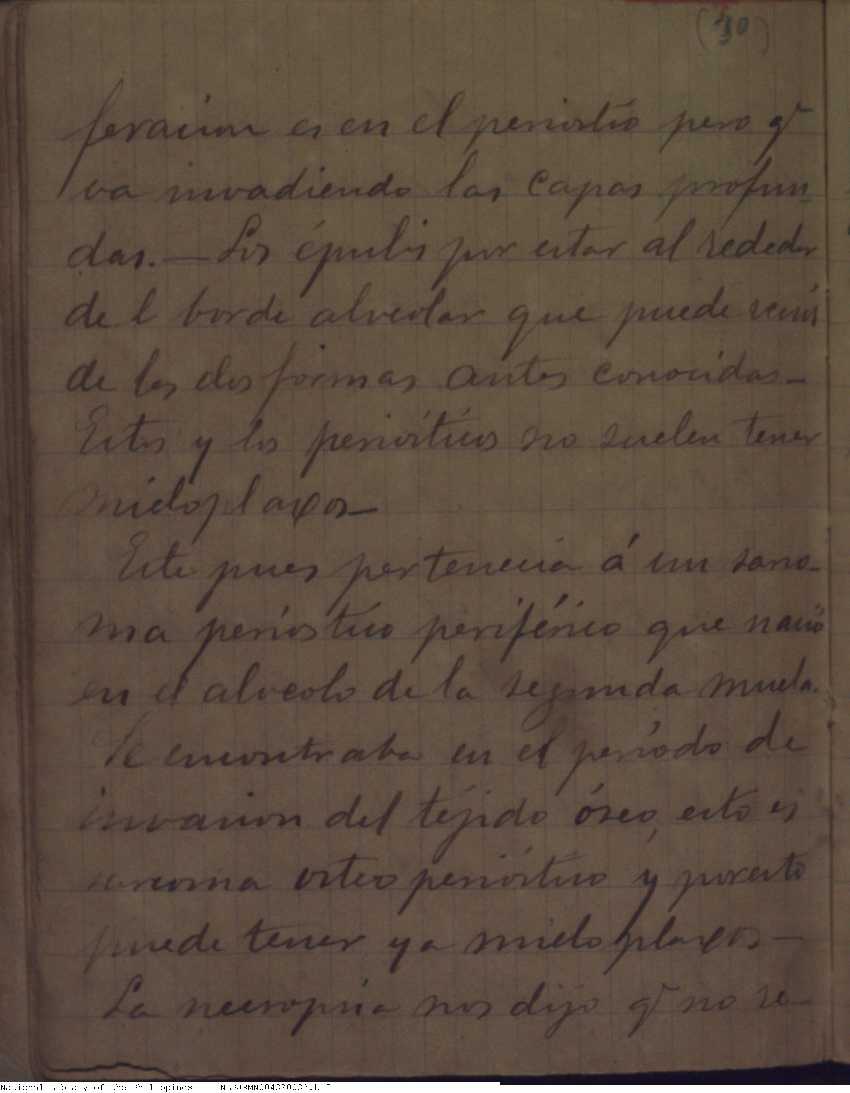 (30)
feracion es en el periostio pero qe
va invadiendo las capas profun-
das.— Los épulis por estar al rededor
de l borde alveolar que puede
de las dos formas antes conocidas—
Estos y los periósticos no suelen tener
mieloplaxos—
Este pues pertenecia á un sarco-
ma perióstico periférico que nació
en el alveolo de la segunda muela.
Se encontraba en el período de
invasion del téjido óseo, esto es
sarcoma osteo perióstico y por esto
puede tener ya mieloplaxos—
La necropsia nos dijo qe no se—
National Library of the Philippines